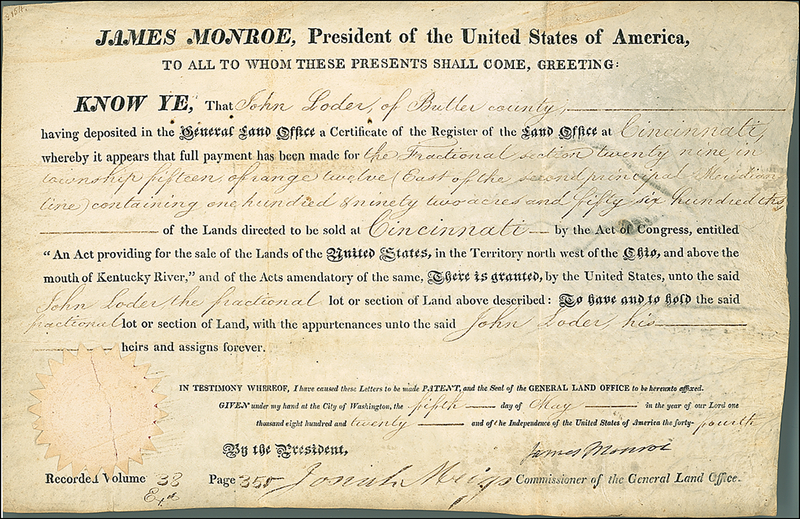 JAMES MONROE, President of the United States of America,
TO ALL TO WHOM THESE PRESENTS SHALL COME, GREETING:
KNOW YE, That John Loder, of Butler county,
having deposited in the General Land Office a Certificate of the Register of the Land Office at Cincinnati,
whereby it appears that full payment has been made for the Fractional section twenty nine, in
township fifteen, of range twelve (East of the second principal Meridian
line) containing one hundred & ninety two acres and fifty six hundredths
of the Lands directed to be sold at Cincinnati by the Act of Congress, entitled
“An Act providing for the sale of the Lands of the United States, in the Territory north west of the Ohio, and above the
mouth of Kentucky River,” and of the Acts amendatory of the same, There is granted, by the United States, unto the said
John Loder the fractional lot or section of Land above described: To have and to hold the said
fractional lot or section of Land, with the appurtenances unto the said John Loder, his
heirs and assigns forever.
IN TESTIMONY WHEREOF, I have caused these Letters to be made PATENT, and the Seal of the GENERAL LAND OFFICE to be hereunto affixed.
GIVEN under my hand at the City of Washington, the fifth day of May in the year of our Lord one
thousand eight hundred and twenty and of the Independence of the United States of America the forty-fourth
By the President, James Monroe
Recorded Volume 38 Page 355 Josiah Meigs Commissioner of the General Land Office.